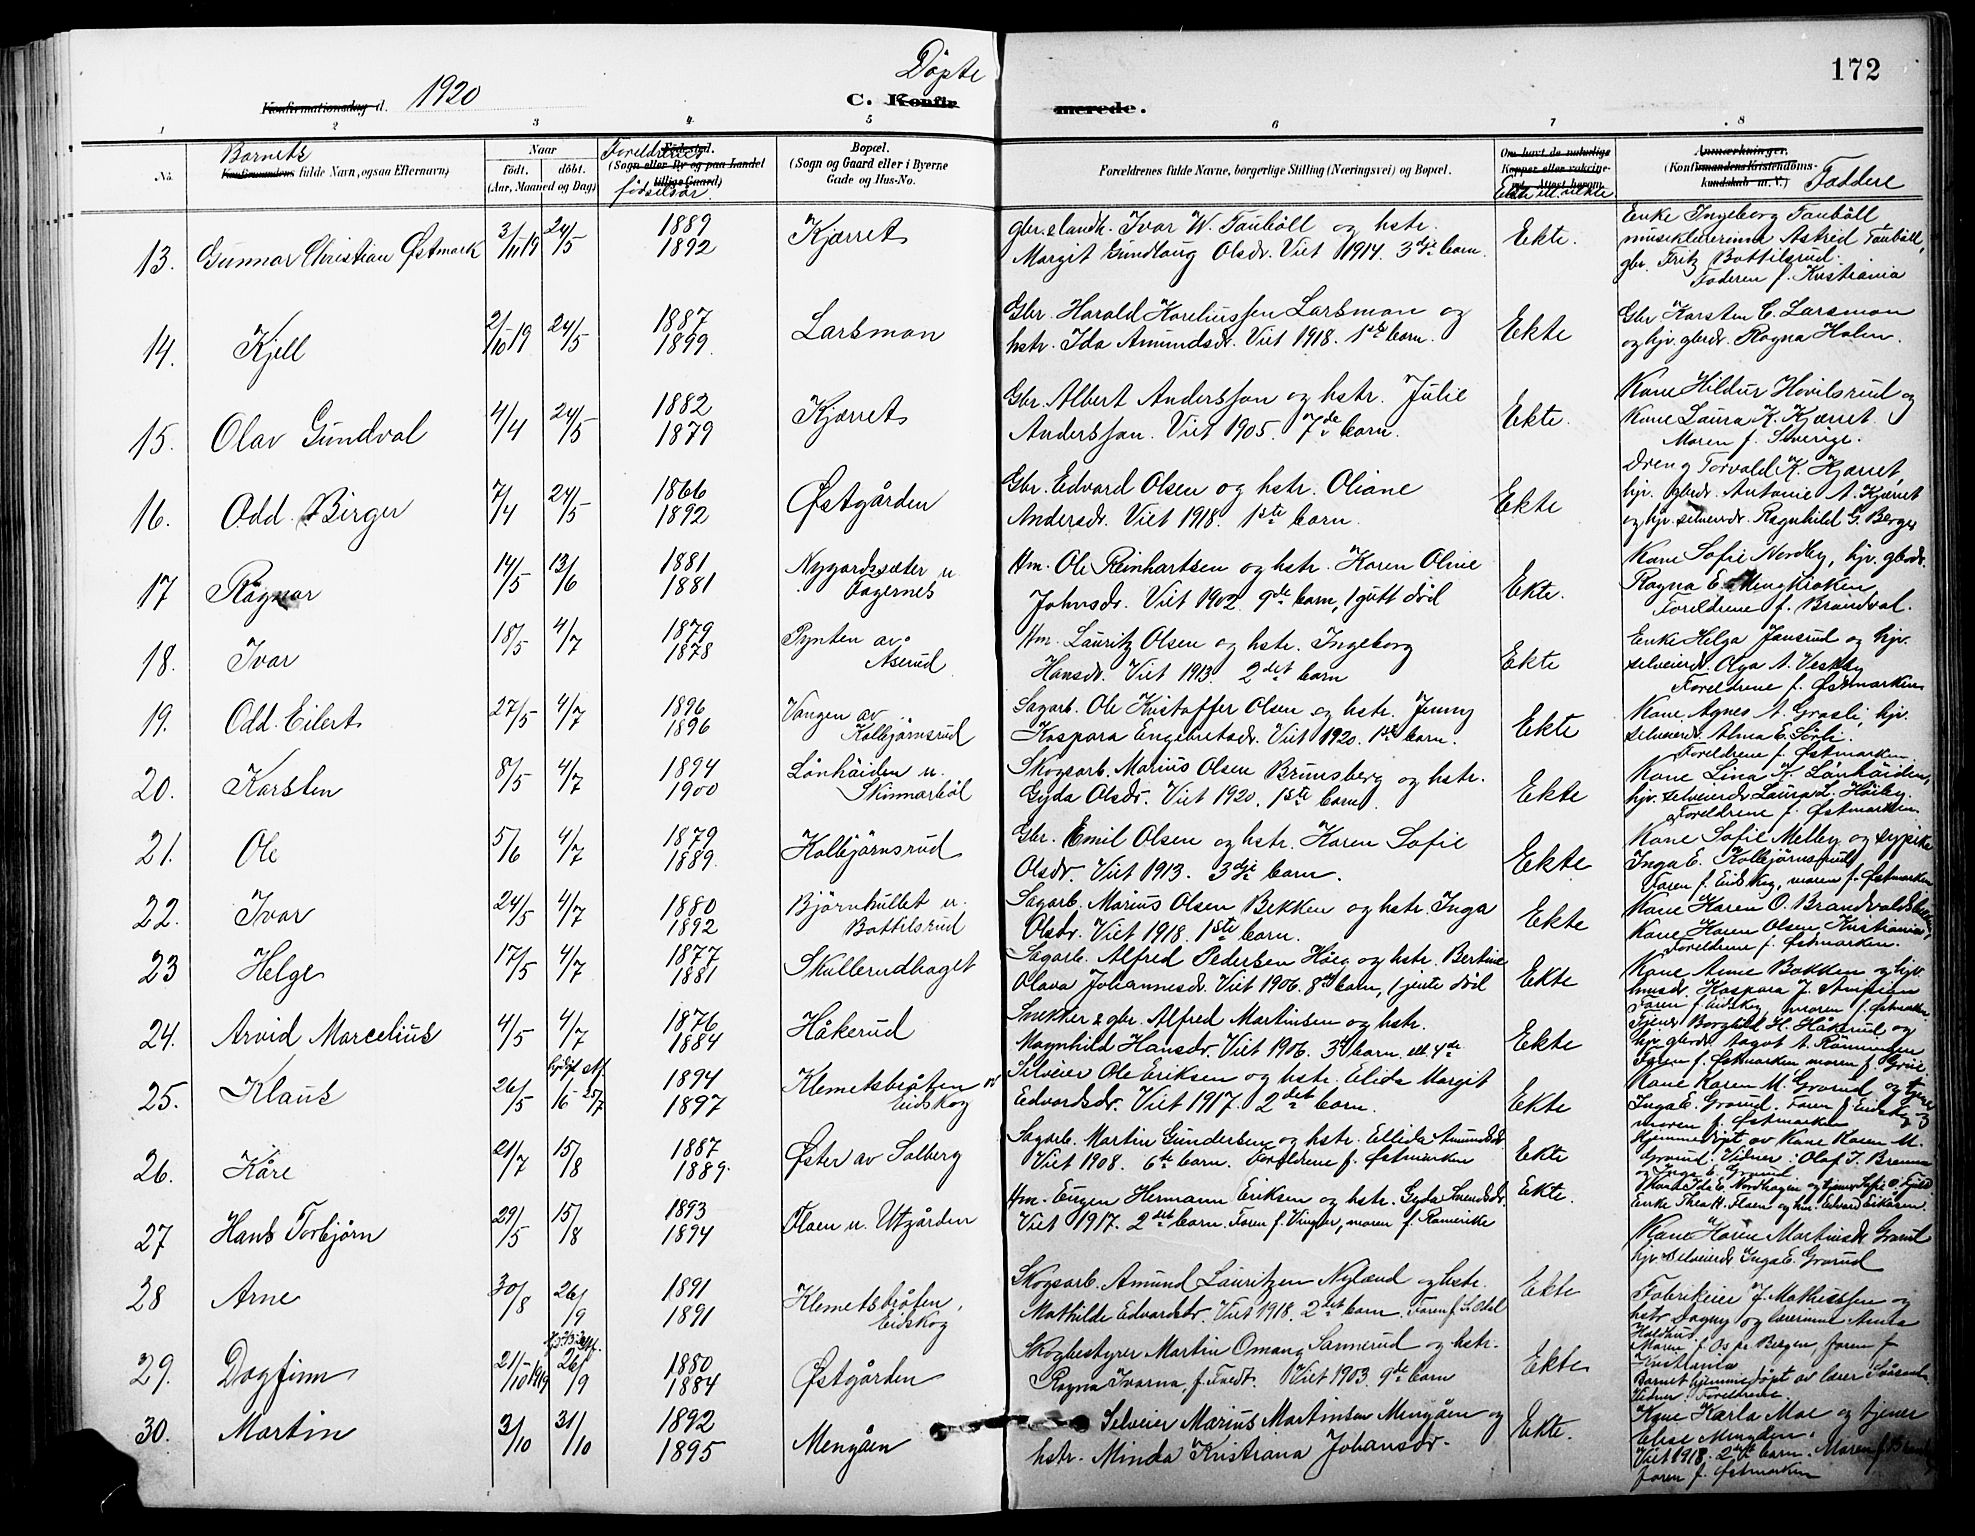 172
Döpte
Konfirmationsdag d. 1920
C. Konfir merede.
1 2 3 4 5 6 7 8
No.
Barnets
Konfirmandens fulde Navn, ogsaa Efternavn)
Naar
födt. döbt.
(Aar, Maaned og Dag)
Foreldrenes
Födested.
(Sogn eller By og paa Landet
tillige Gaard)
födselsår.
Bopæl.
(Sogn og Gaard eller i Byerne
Gade og Hus-No.
Forældrenes fulde Navne, borgerlige Stilling (Næringsvei) og Bopæl.
Om havt de naturlige
Kopper eller vaksine-
ret. Attest herom.
Ekte ell. uekte
Anmærkninger.
(Konfirmandens Kristendoms-
kundskab m. V.)
Faddere
13. Gunnar Christian Østmark 3/11 19 24/5 1889 1892 Kjærret
gbr. & landh. Ivar W. Taubøll og hstr.
Margit Gundlaug Olsdr. Viet 1914. 3dje barn.
Ekte.
Enke Ingeborg Taubøll
musiklærerinne Astrid Taubøll,
gbr. Fritz Bottilsrud.
Faderen f. Kristiania
14. Kjell 2/10 19 24/5 1887 1899. Larsmon
Gbr. Harald Koreliussen Larsmon og
hstr. Ida Amundsdr. Viet 1918. 1ste barn.
Ekte
Gbr Karsten C. Larsmon
og hjv. gbrdr. Ragna Holen.
15. Olav Gundval 4/4 24/5 1882 1879 Kjærret
Gbr. Albert Andersson og hstr. Julie
Andersson. Viet 1905. 7de barn.
Ekte.
Kone Hildur Hovilsrud og
Kone Laura K. Kjærret.
Moren f. Sverige.
16. Odd Birger 7/4 24/5 1866 1892 Østgården
Gbr. Edvard Olsen og hstr. Oliane
Andersdr. Viet 1918. 1ste barn.
Ekte
Dreng Torvald K. Kjærret,
hjv. gbrdr. Antonie A. Kjærret
og hjv. selveierdr. Ragnhild G. Berger
17 Ragnar 14/5 13/6 1881 1881 Nygardssæter u.
Fagernes
Hm. Ole Reinhartsen og hstr. Karen Oline
Johnsdr. Viet 1902. 9de barn, 1 gutt död
Ekte.
Kone Sofie Nordby, hjv. gbrdr.
Ragna E. Mengkroken
Foreldrene f. Brandval.
18. Ivar 18/5 4/7 1879 1878 Pynten av
Åserud
Hm. Lauritz Olsen og hstr. Ingeborg
Hansdr. Viet 1913. 2det barn
Ekte
Enke Helga Jansrud og hjv.
selveierdr. Olga A. Vestby
Foreldrene f. Østmarken
19. Odd Eilert 27/5 4/7 1896 1896 Vangen av
Kolbjørnsrud
Sagarb. Ole Kristoffer Olsen og hstr. Jenny
Kaspara Engebretsdr. Viet 1920. 1ste barn.
Ekte
Kone Agnes A. Grasli, hjv.
selveierdr. Alma E. Sörli.
Foreldrene f. Østmarken
20. Karsten 8/5 4/7 1894 1900 Lönhöiden u.
Skinnarböl
Skogsarb. Marius Olsen Brunsberg og hstr.
Gyda Olsdr. Viet 1920. 1ste barn.
Ekte
Kone Lina K. Lönhöiden,
hjv. selveierdr Laura L. Höiby.
Foreldrene f. Østmarken.
21. Ole 5/6 4/7 1879 1889. Kolbjörnsrud
Gbr. Emil Olsen og hstr. Karen Sofie
Olsdr. Viet 1913. 3dje barn.
Ekte
Kone Sofie Melby og sypike
Inga E. Kolbjörnsrud
Faren f. Eidskog, moren f. Østmarken
22. Ivar 24/5 4/7 1880 1892 Björnhullet u.
Bottilsrud
Sagarb. Marius Olsen Bekken og hstr. Inga
Olsdr. Viet 1918. 1ste barn.
Ekte
Kone Karen O.
Kone Karen Olsen Kristiania,
Foreldrene f. Østmarken.
23 Helge 17/5 4/7 1877 1881 Skullerudhaget
Sagarb. Alfred Pedersen Höeg og hstr. Bertine
Olava Johannesdr. Viet 1906. 8de barn, 1 jente död
Ekte
Kone Anne Bakken og hjv.
husdr. Kaspara J.
Faren f. Eidskog, moren f. Østmarken
24. Arvid Marcelius 4/5 4/7 1876 1884 Håkerud
Snekker & gbr. Alfred Martinsen og hstr.
Magnhild Hansdr. Viet 1906. 3dje barn, ell. 4de
Ekte
Tjener Borghild H. Håkerud og
hjv. gbrdr. Aagot A. Rönningen
Faren f. Østmarken, moren f. Grue
25. Klaus 26/5 16- 25/7 1894 1897 Klemetsbråten
Eidskog
Selveier Ole Eriksen og hstr. Elida Margit
Edvardsdr. Viet 1917. 2det barn.
Ekte
Kone Karen M. Grorud og tjener
Inga E. Grorud. Faren f. Eidskog og
moren f. Østmarken
Hjemmedöpt av Kone Karen M.
Grorud. Vidner: Olaf T.
og Inga E. Grorud
26. Kåre 21/7 15/8 1887 1889. Øster av Solberg
Sagarb. Martin Gundersen og hstr. Ellida Amundsdr.
Viet 1908. 6te barn. Foreldrene f. Østmarken
Ekte
Kone Ida E. Nordhagen og tjener Sofie O.
27 Hans Torbjörn 29/5 15/8 1893 1894 Floen u. Utgården
Hm. Eugen Hermann Eriksen og hstr. Gyda Svendsdr.
Viet 1917. 2det barn. Faren f. Vinger, moren f. Romerike
Ekte.
Enke Thea H. Floen og hm. Edvard Eriksen.
28 Arne 30/8 26/9 1891 1891 Klemetsbråten,
Eidskog
Skogsarb. Amund Lauritzen Nyland og hstr.
Mathilde Edvardsdr. Viet 1918. 2det barn. Faren f. S. Odal
Ekte
Kone Karen Martinsdr Grorud
hjv. selveierdr Inga E. Grorud
29. Dagfinn 21/10 1919 26/9 1880 1884 Østgården
Skogbestyrer Martin Omang Sannerud og hstr.
Ragna Ivarna, f. Tvedt. Viet 1903. 9de barn
Ekte
Fabrikeier J. Mathiessen og
hstr Dagny og lærerinne Anta
Holdhus
Moren f. Os pr. Bergen, faren f.
Kristiania
Barnet hjemmedöpt av lærer
Vidner: Foreldrene.
30. Martin 3/10 31/10 1892 1895 Mengåen
Selveier Marius Martinsen Mengåen og
hstr. Minda Kristiana Johansdr.
Ekte.
Kone Karla Moe og tjener
Elise Mengden.
Viet 1918. 2det barn. Moren f.
faren f. Østmarken